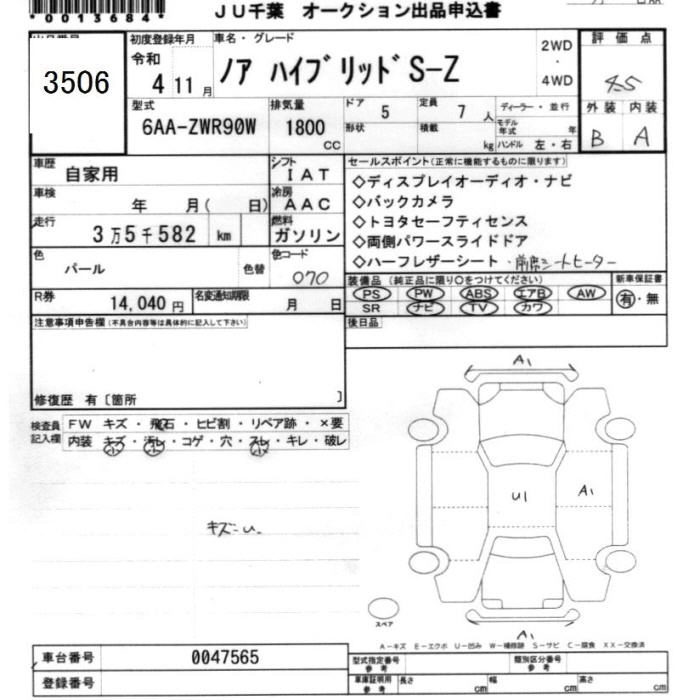 *0013684*
JU千葉 オークション出品申込書
3506
初度登録年月
令和
4 11 月
車名・グレード
ノア ハイブリッドS-Z
2WD
・
4WD
評価点
4.5
外装 内装
B A
型式
6AA-ZWR90W
排気量
1800
cc
ドア
5
定員
7 人
形状
積載
kg
ディーラー・並行
モデル年式 年
ハンドル 左・右
車歴
自家用
シフト
I AT
車検
年 月( 日)
冷房
A AC
走行
3万5千582 km
燃料
ガソリン
色
パール
色替
色コード
070
R券
14,040 円
名変通知期限
月 日
セールスポイント(正常に機能するものに限ります)
◇ディスプレイオーディオ・ナビ
◇バックカメラ
◇トヨタセーフティセンス
◇両側パワースライドドア
◇ハーフレザーシート・前席シートヒーター
装備品 (純正品に限り〇をつけてください)
PS PW ABS エアB AW
SR ナビ TV カワ
新車保証書
有・無
後日品
注意事項申告欄(不具合内容等は具体的に記入して下さい)
修復歴 有〔箇所 〕
検査員
記入欄
FW キズ・飛石・ヒビ割・リペア跡・×要
内装 キズ・汚レ・コゲ・穴・スレ・キレ・破レ
小 小 小
キズ-U.
A1
U1
A1
A1
スペア
A-キズ E-エクボ U-凹み W-補修跡 S-サビ C-腐食 XX-交換済
車台番号
0047565
登録番号
型式指定番号
参考
類別区分番号
参考
車庫証明用
参考
長さ cm
幅 cm
高さ cm